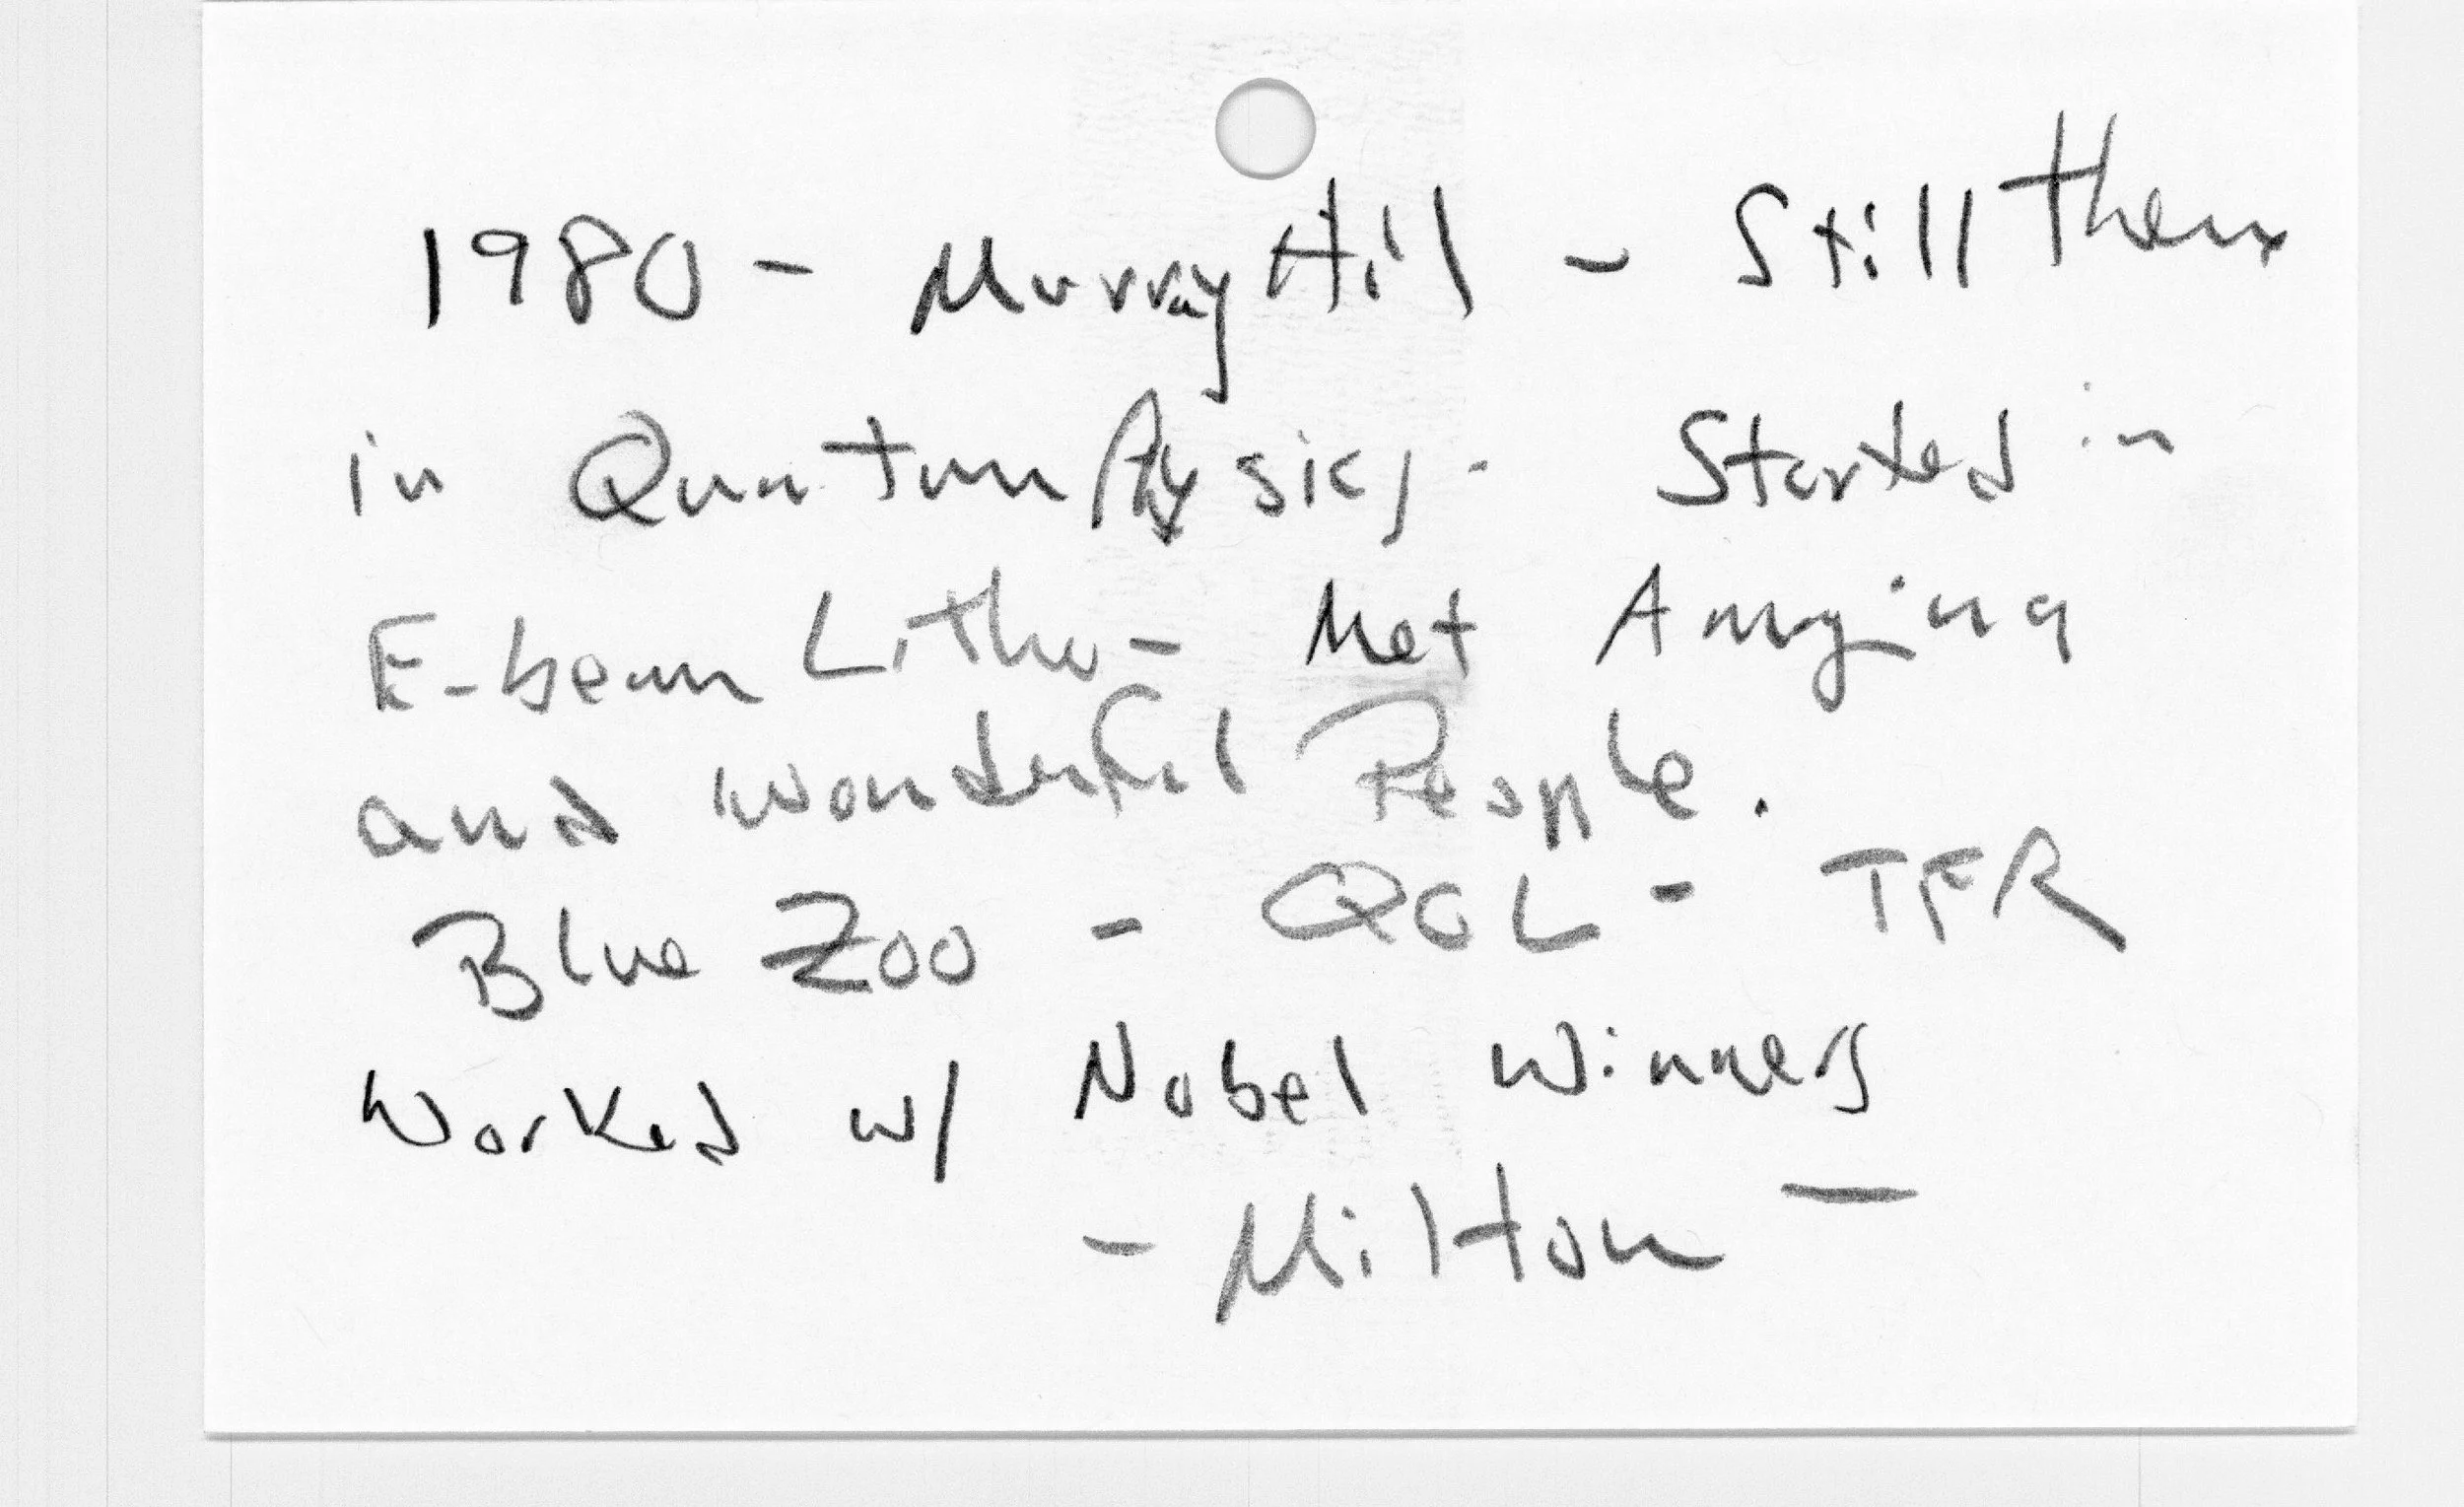 1980 - Murray Hill - Still there
in Quantum Physics - Started in
E-beam Litho - Met Amazing
and wonderful People.
Blue Zoo - QCL - TFR
Worked w/ Nobel Winners
- Milton -